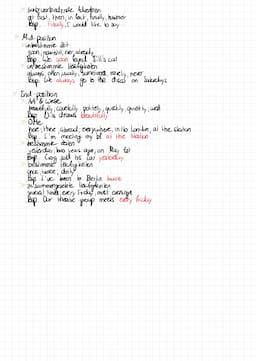 at last, then, in fact, finally, however
Bsp. Finally, I would like to say
Mid position
unbestimmte Zeit
soon, now, still, never, already
Bsp. We soon found Jill's cat
unbestimmte Häufigkeiten
always, often, usually, sometimes, rarely, never
Bsp. We always go to the disco on Saturdays
End position
Art & Weise
beautifully, carefully, politely, quickly, quietly, well
Bsp. draws beautifully
Orte
here, there, abroad, everywhere, in London, at the station
Bsp. I'm meeting my at the station
bestimmte Zeiten
yesterday, two years ago, on May 1st
Bsp. sold his car yesterday
bestimmte Häufigkeiten
once, twice, daily
Bsp. I've been to Berlin twice
several times, every Friday, most evenings
Bsp. Our theatre group meets every Friday